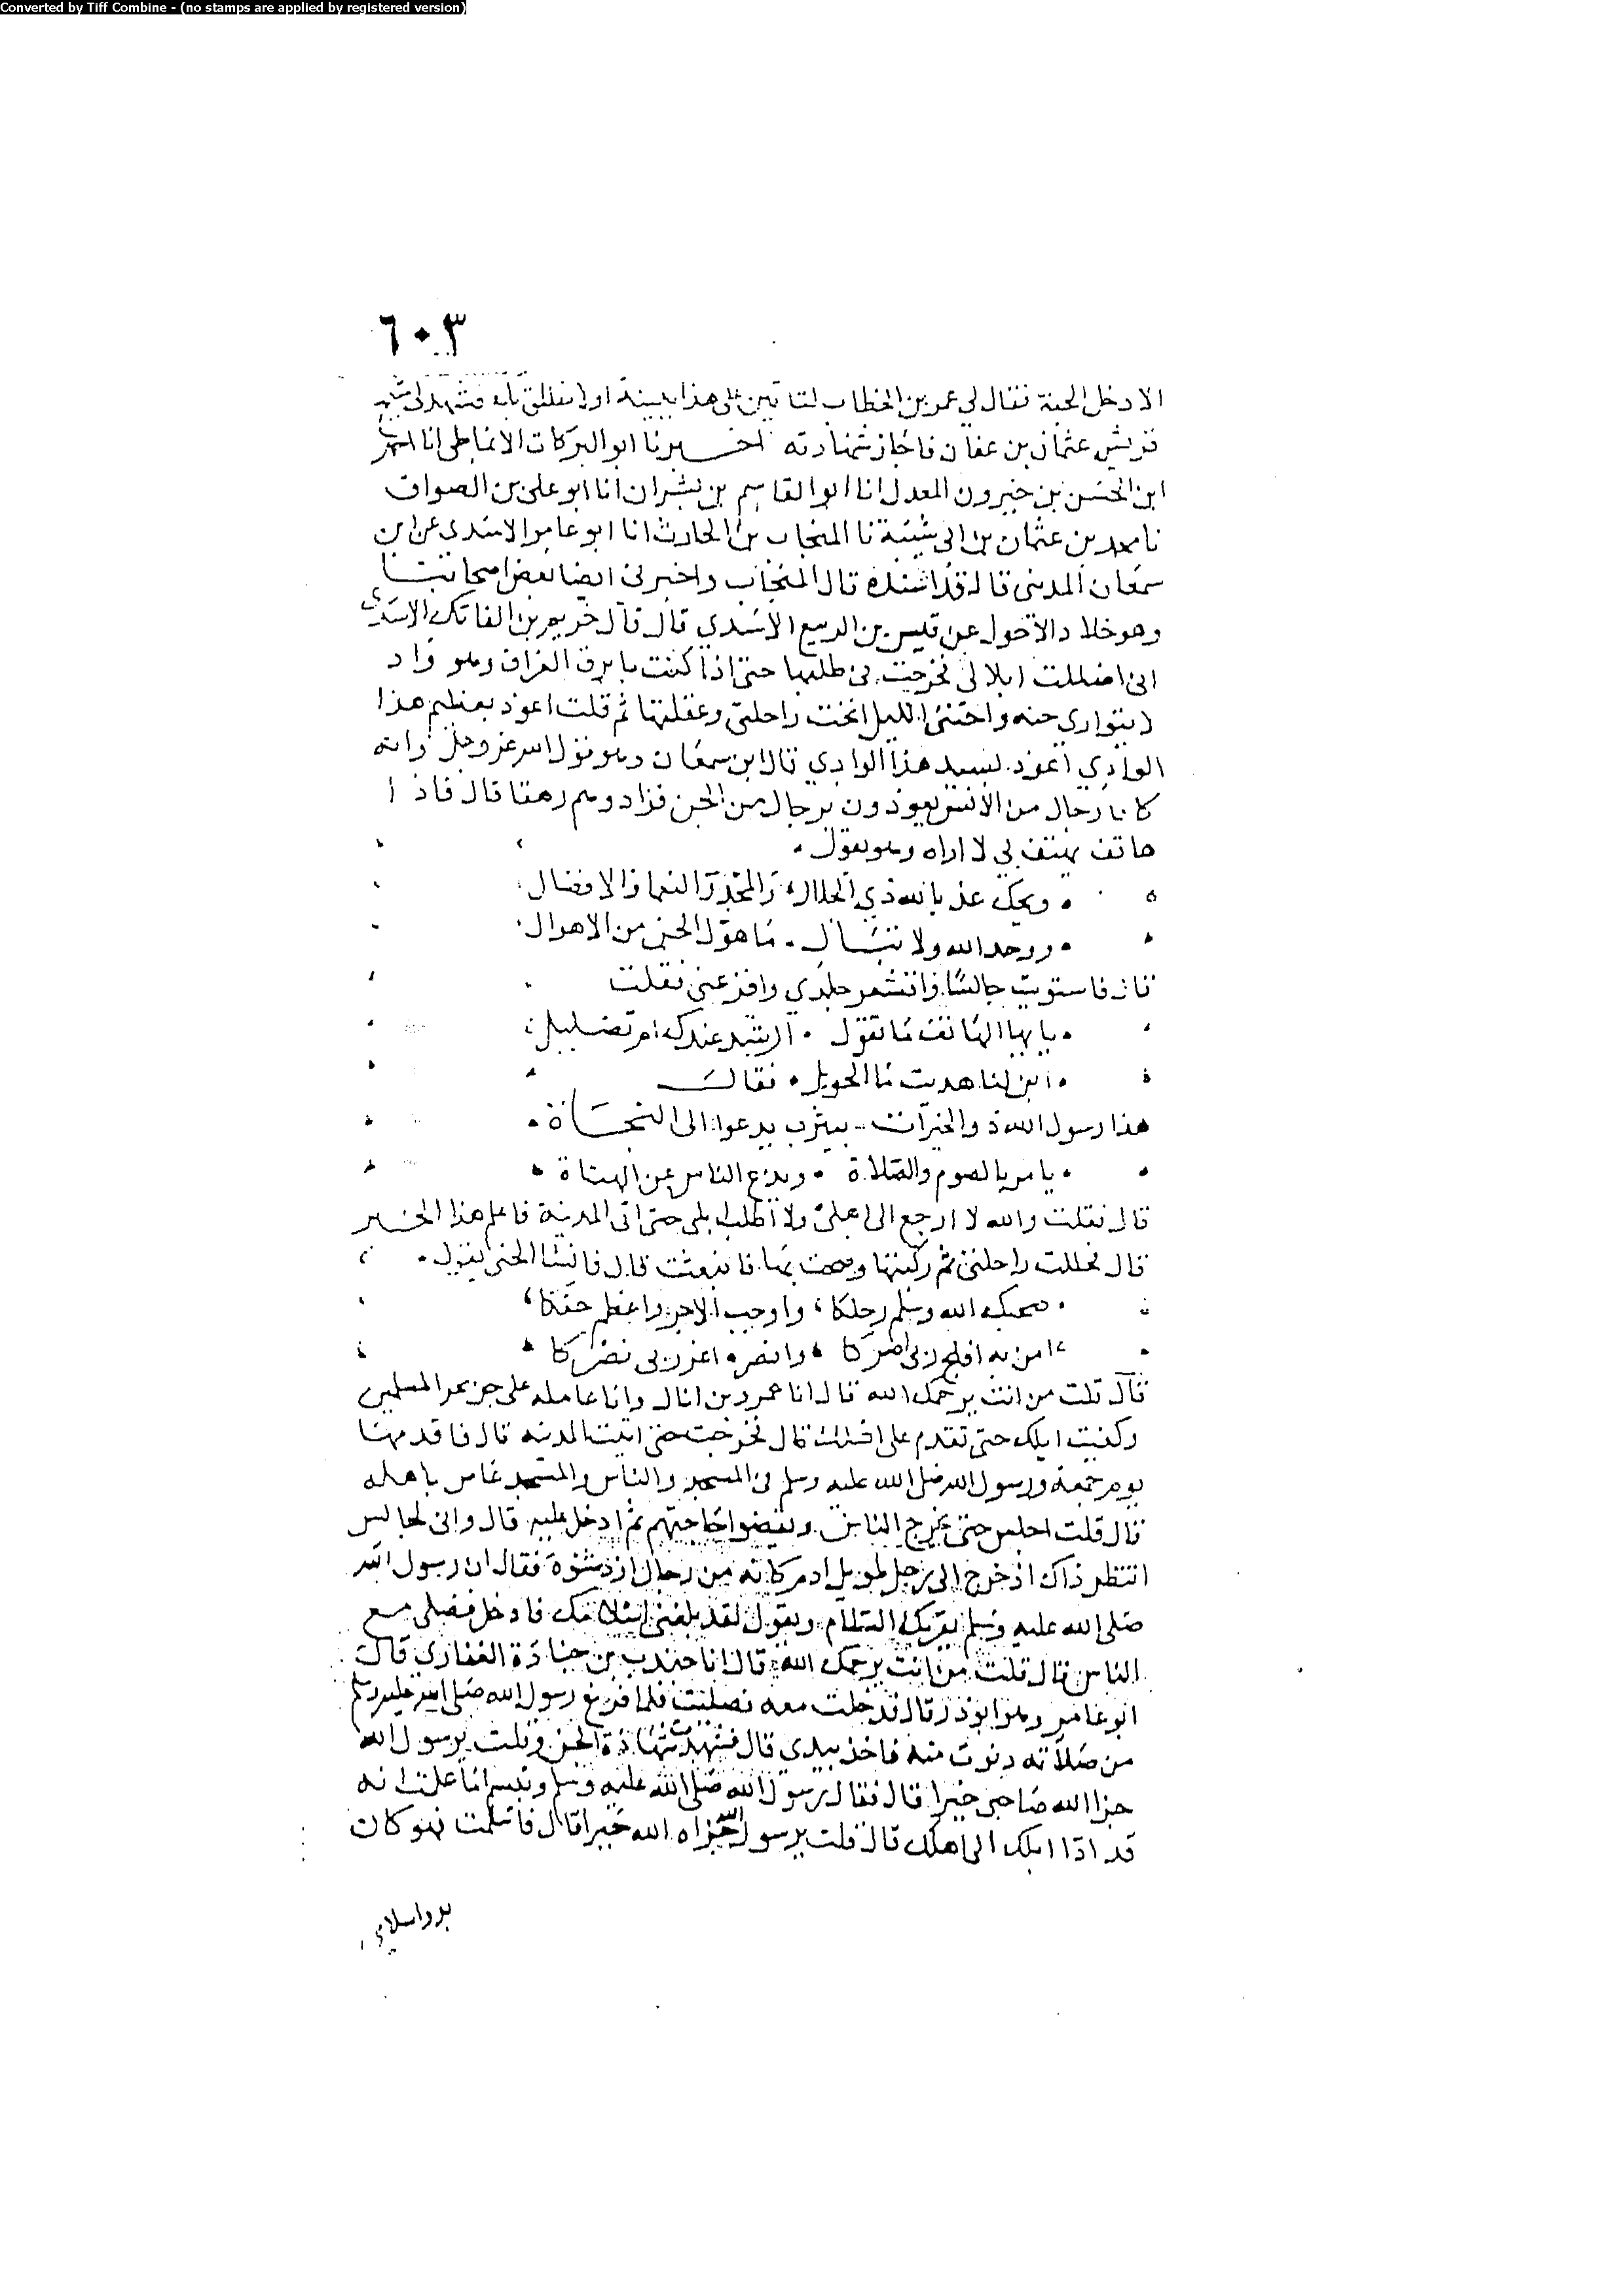 Converted by Tiff Combine - (no stamps are applied by registered version)
٦٠٣
الا دخل الجنة فقال لي عمر بن الخطاب لتاتين على هذا ببينة او لانكلن بك فشهد لي شيخ
قريش عثمان بن عفان فاجاز شهادته اخبرنا ابو البركات الانماطي انا احمد
ابن الحسن بن خيرون المعدل انا ابو القاسم بن بشران انا ابو علي بن الصواف
نا محمد بن عثمان بن ابي شيبة نا المنجاب بن الحارث انا ابو عامر الاسدي عن ابن
سمعان المديني قال قد اسنده قال المنجاب واخبرني ايضا بعض اصحابنا
وهو خلاد الاحول عن قيس بن الربيع الاسدي قال قال خريم بن الفاتك الاسدي
اني اضللت ابلا لي فخرجت في طلبها حتى اذا كنت بابرق العزاف وهو واد
لا يتوارى جنه واجنني الليل انخت راحلتي وعقلتها ثم قلت اعوذ بعظيم هذا
الوادي اعوذ بسيد هذا الوادي قال ابن سمعان وهو قول الله عز وجل وانه
كان رجال من الانس يعوذون برجال من الجن فزادوهم رهقا قال فاذا
هاتف يهتف بي لا اراه وهو يقول
ويحك عذ بالله ذي الجلال والمجد والنعما والافضال
ووحد الله ولا تبال ما هول الجن من الاهوال
قال فاستويت جالسا واقشعر جلدي وافزعني فقلت
يا ايها الهاتف ما تقول ارشد عندك ام تضليل
ابن لنا هديت ما الحويل فقال
هذا رسول الله ذو الخيرات بيثرب يدعوا الى النجاة
يامر بالصوم والصلاة ويزع الناس عن الهناة
قال فقلت والله لا ارجع الى اهلي ولا اطلب ابلي حتى اتى المدينة فاعلم هذا الخبر
قال فحللت راحلتي ثم ركبتها وصحت بها فانبعثت قال فانشا الجني يقول
صحبك الله وسلم رحلكا واوجب الاجر واعظم حقكا
امن به افلج ربي امركا وانصره اعز ربي نصركا
قال قلت من انت يرحمك الله قال انا عمرو بن اثال وانا عامله على جن نجد المسلمين
وكفيت ابلك حتى تقدم على اهلك قال فخرجت حتى اتيت المدينه قال فاقدمها
يوم جمعة ورسول الله صلى الله عليه وسلم في المسجد والناس والمسجد غاص باهله
قال قلت اجلس حتى يخرج الناس ويقضوا حاجتهم ثم ادخل عليه قال واني لجالس
انتظر ذاك اذ خرج الي رجل طويل ادم كانه من رجال ازد شنوة فقال ان رسول الله
صلى الله عليه وسلم يقريك السلام ويقول لقد بلغني اسلامك فادخل فصلي مع
الناس قال قلت من انت يرحمك الله قال انا جندب بن جنادة الغفاري قال
ابو عامر وهو ابو ذر قال فدخلت معه فصليت فلما فرغ رسول الله صلى الله عليه وسلم
من صلاته دنوت منه فاخذ بيدي قال فشهدت شهادة الحق وقلت يرسول الله
جزا الله صاحبي خيرا قال فقال رسول الله صلى الله عليه وسلم وتبسم اما علمت انه
قد ادا ابلك الى اهلك قال قلت يرسول الله جزاه الله خيرا قال فاسلمت فهو كان
بدو اسلامي